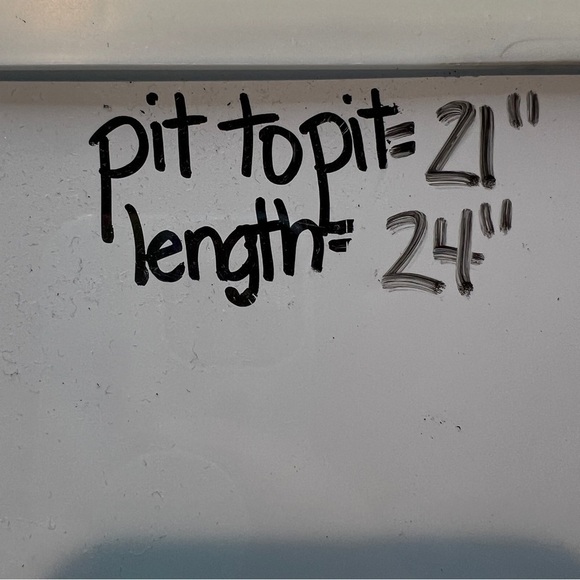 pit to pit = 21"
length = 24"